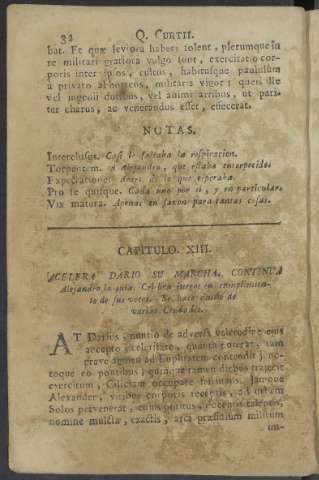 32 Q. CURTII.
bat. Et quæ leviora haberi solent, plerumque in
re militari gratiora vulgo sunt, exercitatio cor-
poris inter ipsos, cultus, habitusque paululum
a privato abhorrens, militaris vigor; queis ille
vel ingenii dotibus, vel animi artibus, ut pari-
ter charus, ac venerandus esset, effecerat.
NOTAS.
Interclusus. Casi le faltaba la respiracion.
Torpentem. A Alejandro, que estaba entorpecido.
Expectatione. Antes de lo que esperaba.
Pro se quisque. Cada uno por sí, y en particular.
Vix matura. Apenas en sazon para tantas cosas.
CAPITULO. XIII.
ACELERA DARIO SU MARCHA. CONTINUA
Alejandro la suya. Celebra juegos en cumplimien-
to de sus votos. Se hace dueño de
varias Ciudades.
AT Darius, nuntio de adversa valetudine ejus
accepto, celeritate, quanta poterat, tam
grave agmen ad Euphratem contendit; junc-
toque eo pontibus, quinque tamen diebus trajecit
exercitum, Ciliciam occupare festinans. Jamque
Alexander, viribus corporis receptis, ad urbem
Solos pervenerat, cujus potitus, ducentis talentis,
nomine mulctæ, exactis, arci præsidium militum
im-